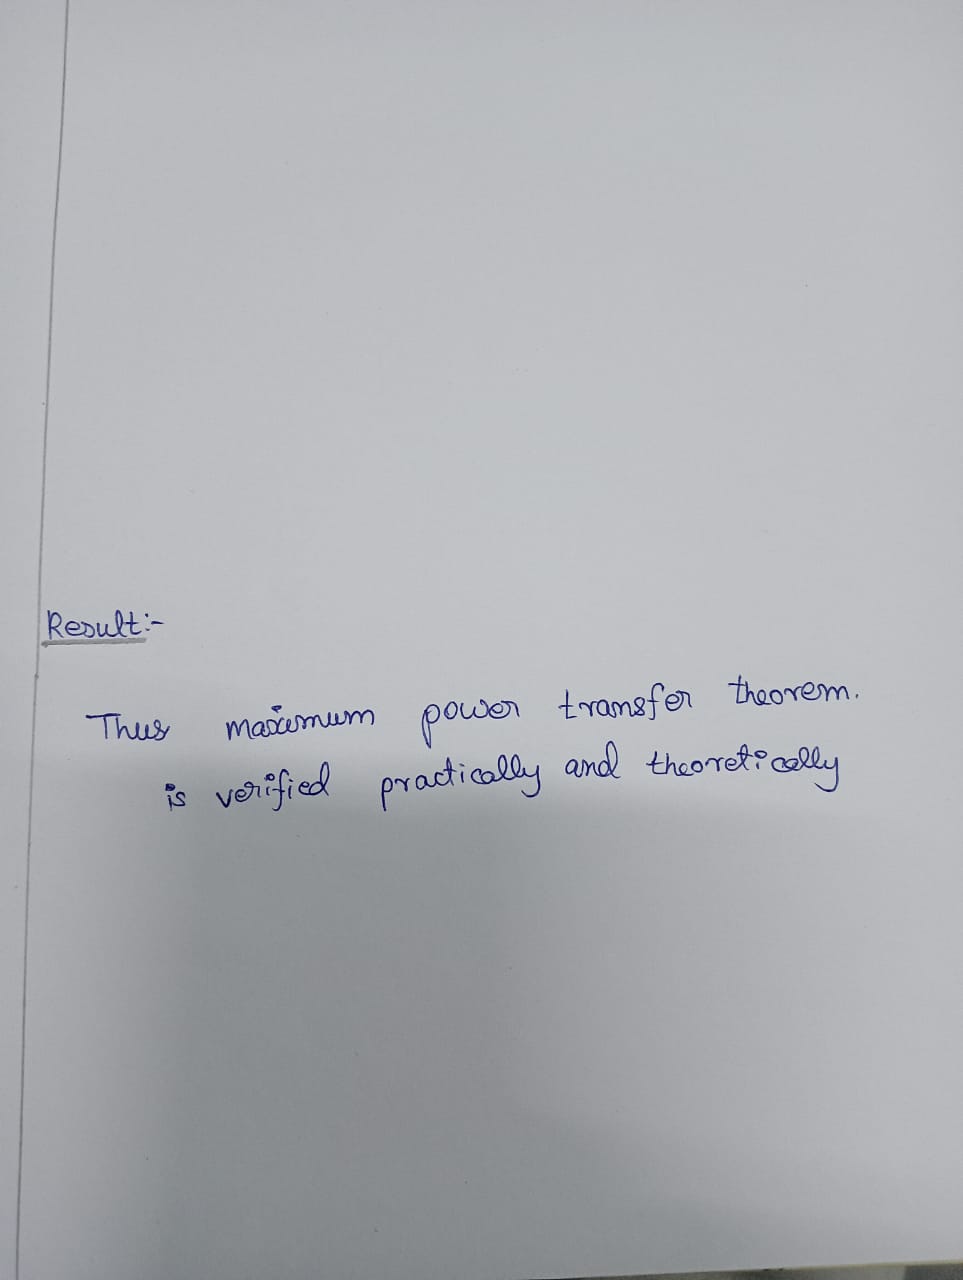 Result:-
Thus maximum power transfer theorem.
is verified practically and theoretically